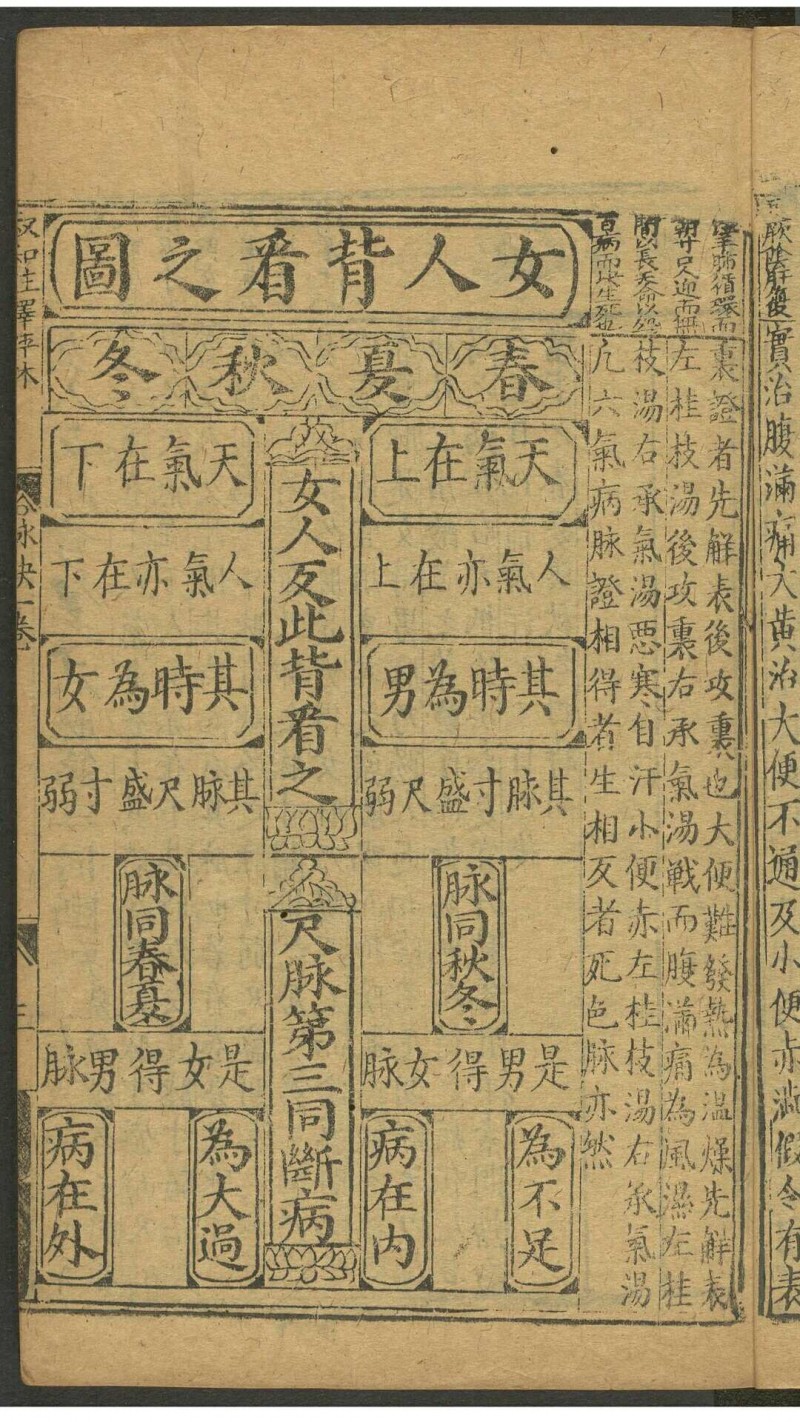 厥陰脉復實治腹滿痛大黃治大便不通及小便赤澁假令有表
裏證者先解表後攻裏也大便難發熱為温燥先解表
左桂枝湯後攻裏右承氣湯戰而腹滿痛為風濕左桂
枝湯右承氣湯惡寒自汗小便赤左桂枝湯右承氣湯
凢六氣病脉證相得者生相反者死色脉亦然
女人背看之圖
春夏秋冬
天氣在上
人氣亦在上
其時為男
其脉寸盛尺弱
脉同秋冬
是男得女脉
為不足
病在内
故
女人反此背看之
尺脉第三同斷病
天氣在下
人氣亦在下
其時為女
其脉尺盛寸弱
脉同春夏
是女得男脉
為大過
病在外
脉訣一卷